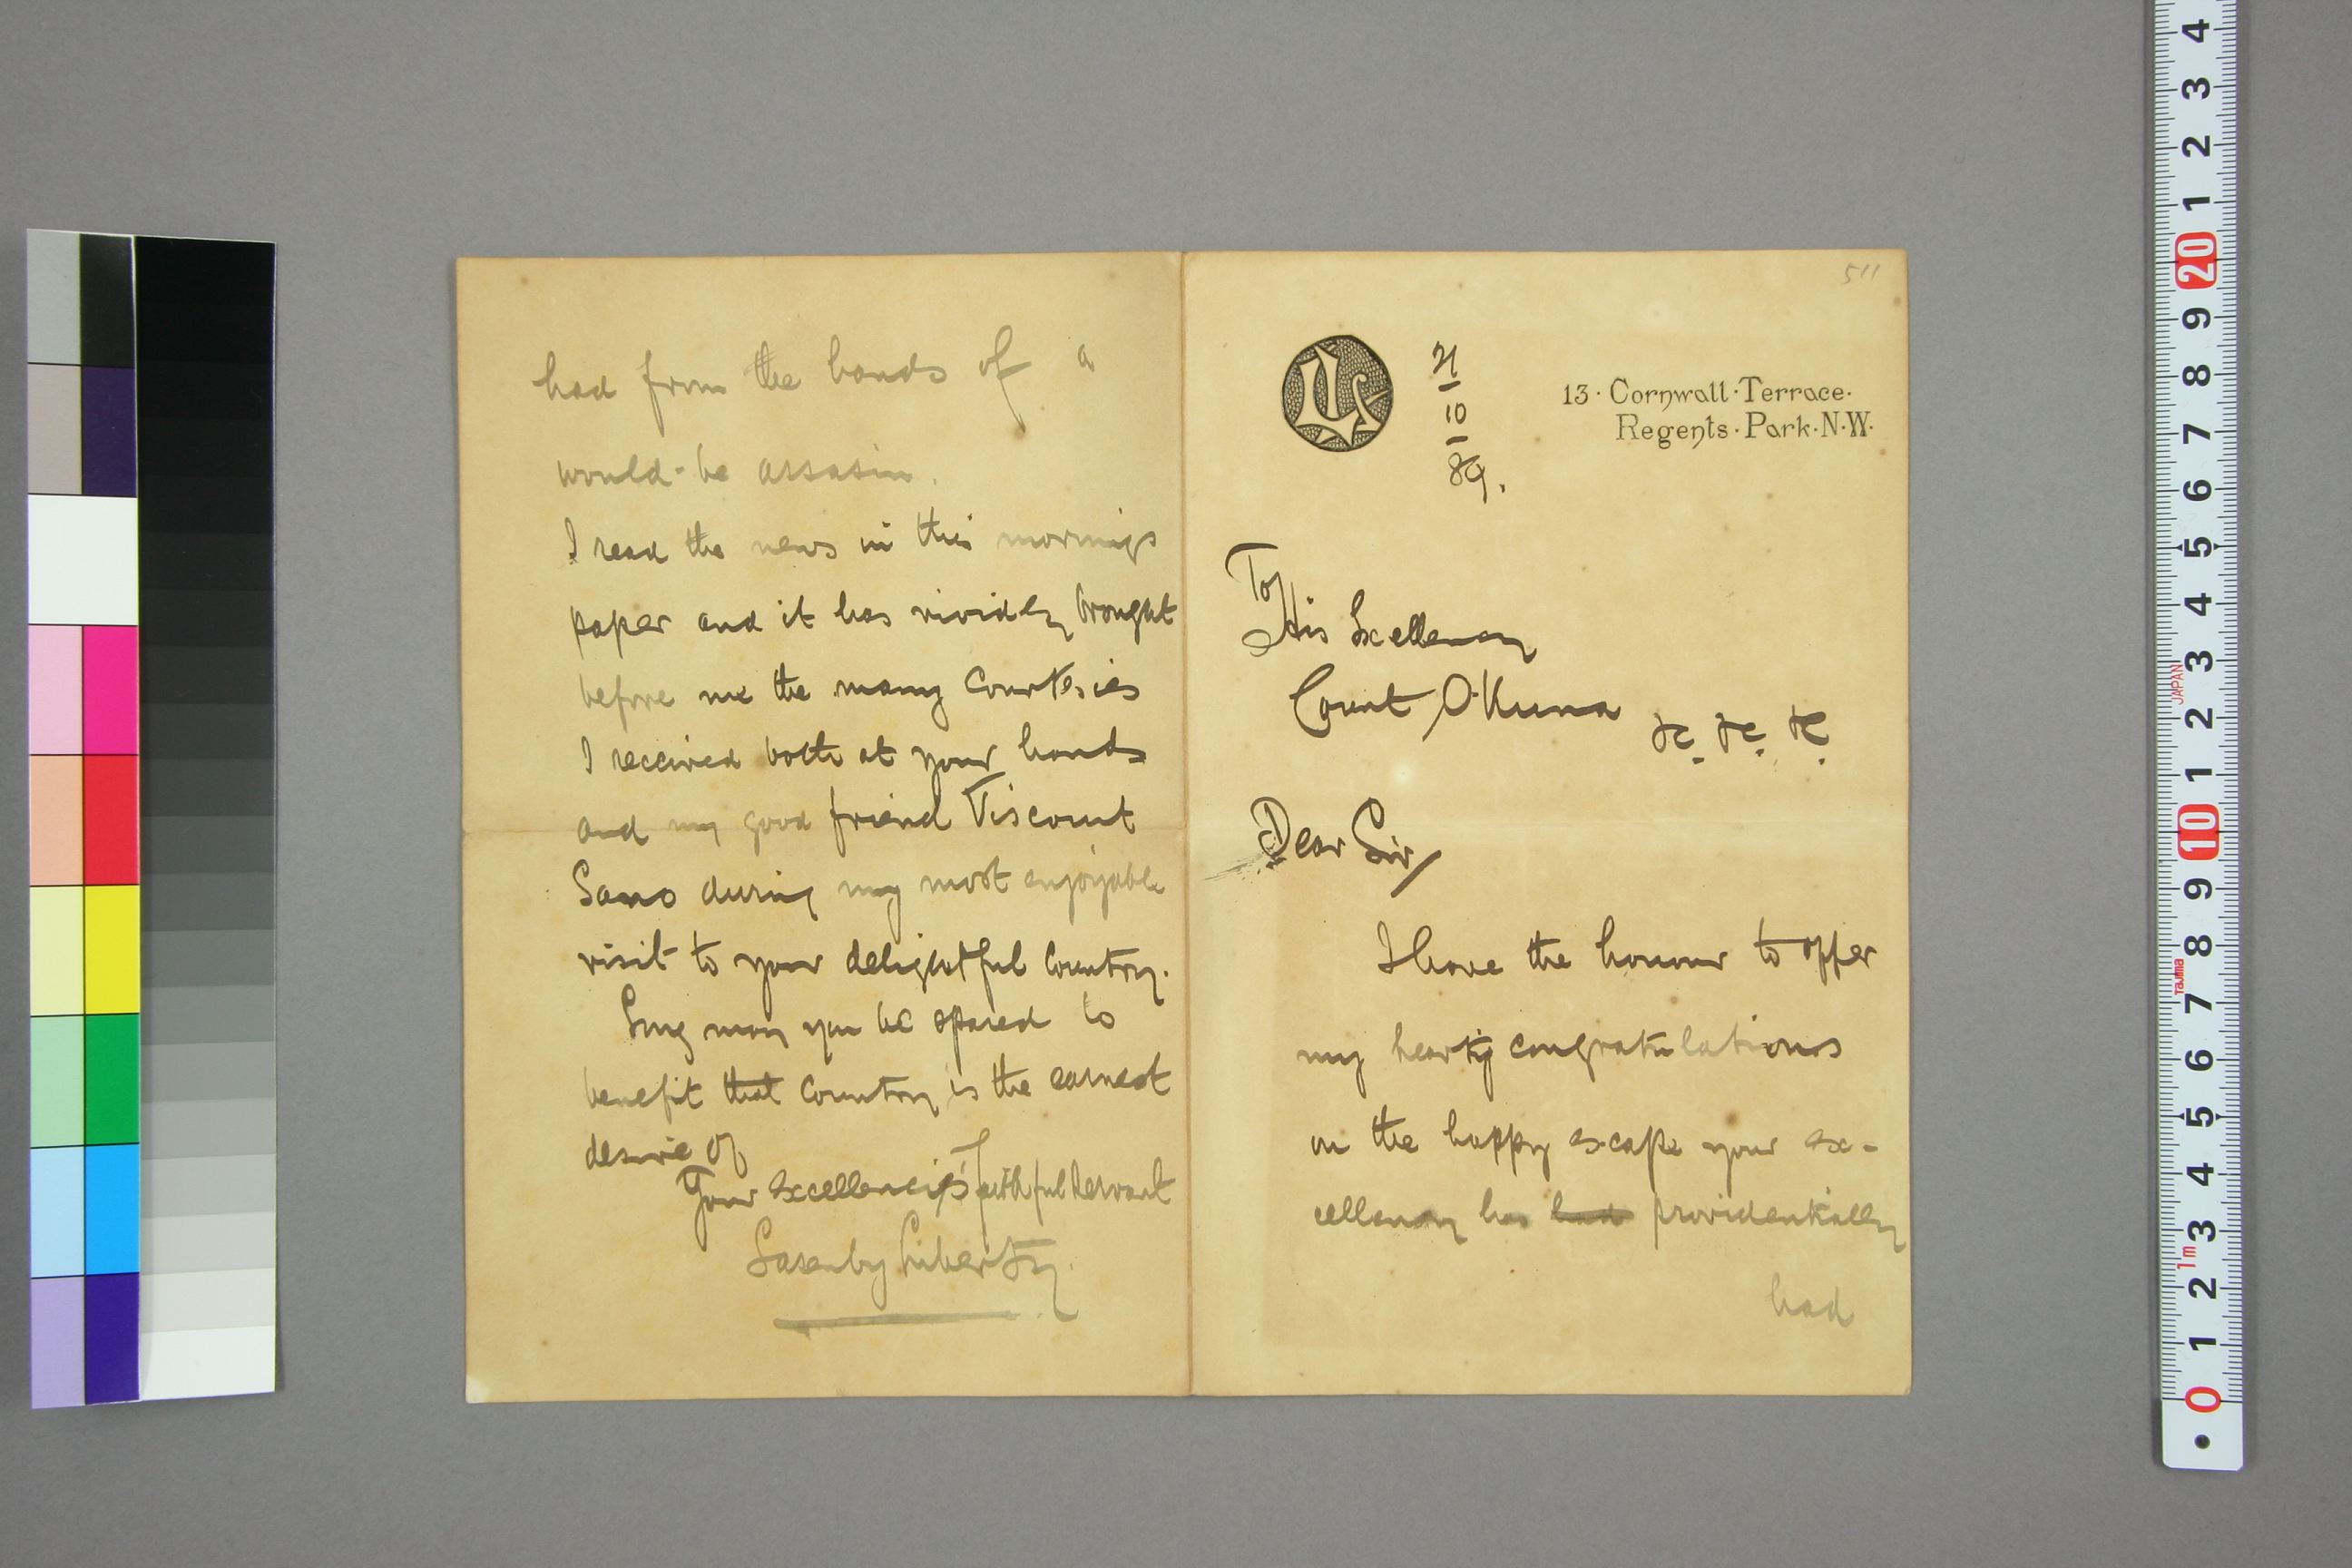 511
13 · Cornwall · Terrace ·
Regents · Park · N · W ·
21
10
89.
To
His Excellency
Count Okuma
&c. &c. &c.
Dear Sir,
I have the honour to offer
my hearty congratulations
on the happy escape your ex-
cellency has had providentially
had
had from the hands of a
would-be assasin.
I read the news in this mornings
paper and it has vividly brought
before me the many Courtesies
I received both at your hands
and my good friend Viscount
Sano during my most enjoyable
visit to your delightful Country.
Long may you be spared to
benefit that Country is the earnest
desire of
Your excellencies faithful servant
Lasenby Liberty
4
3
2
1
20
9
8
7
6
5
4
3
JAPAN
2
1
10
9
8
Tajima
7
6
5
4
3
1m
2
1
0